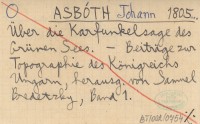 O ASBÓTH Johann 1805.
Über die Karfunkelsage des
Grünen Sees. – Beiträge zur
Topographie des Königreichs
Ungarn, herausg. von Samuel
Bredetzky, Band 1.